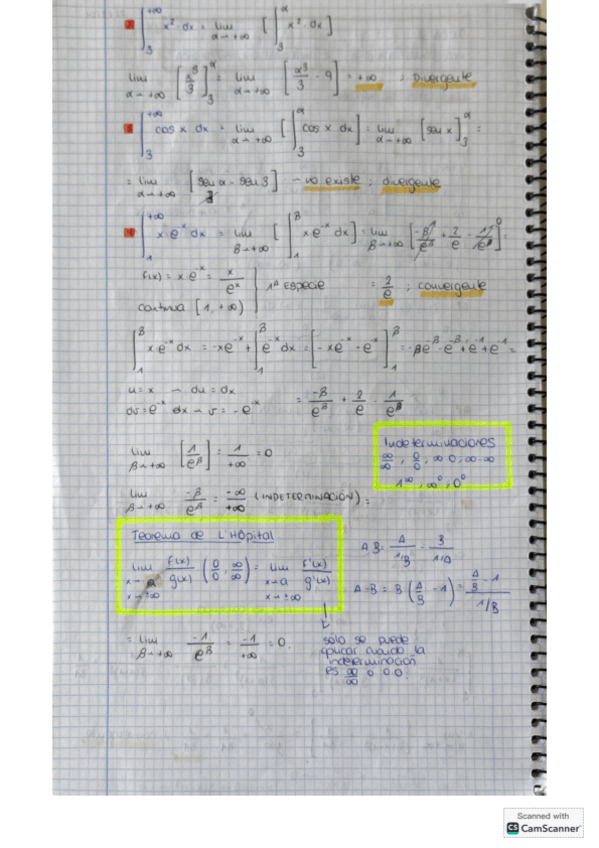 ∫₃^{+∞} x²·dx = lim_{α→+∞} [∫₃^α x²·dx]
lim_{α→+∞} [x³/3]₃^α = lim_{α→+∞} [α³/3 - 9] = +∞ ; Divergente
∫₃^{+∞} cos x dx = lim_{α→+∞} [∫₃^α cos x dx] = lim_{α→+∞} [sen x]₃^α =
= lim_{α→+∞} [sen α - sen 3] → no existe ; divergente
∫₁^{+∞} x·e^{-x} dx = lim_{β→+∞} [∫₁^β x e^{-x} dx] = lim_{β→+∞} [-β/e^β + 2/e - 1/e^β] =
f(x) = x·e^{-x} = x/e^x 1ª ESPECIE = 2/e ; convergente
continua [1, +∞)
∫₁^β x e^{-x} dx = -xe^{-x} + ∫₁^β e^{-x} dx = [-xe^{-x} - e^{-x}]₁^β = -βe^{-β} - e^{-β} + e^{-1} + e^{-1} =
u = x → du = dx
dv = e^{-x} dx → v = -e^{-x} = -β/e^β + 2/e - 1/e^β
lim_{β→+∞} [1/e^β] = 1/+∞ = 0
Indeterminaciones
∞/∞ ; 0/0 ; ∞·0 ; ∞-∞
1^∞ ; ∞⁰ ; 0⁰
lim_{β→+∞} -β/e^β = -∞/+∞ (INDETERMINACIÓN) =
Teorema de L'Hôpital
lim_{x→a, x→±∞} f(x)/g(x) (0/0 ∞/∞) = lim_{x→a, x→±∞} f'(x)/g'(x)
A·B = A/1/B = B/1/A
A-B = B (A/B - 1) = A/B - 1/1/B
= lim_{β→+∞} -1/e^β = -1/+∞ = 0.
solo se puede
aplicar cuando la
indeterminación
es ∞/∞ o 0/0.
Scanned with
CS CamScanner